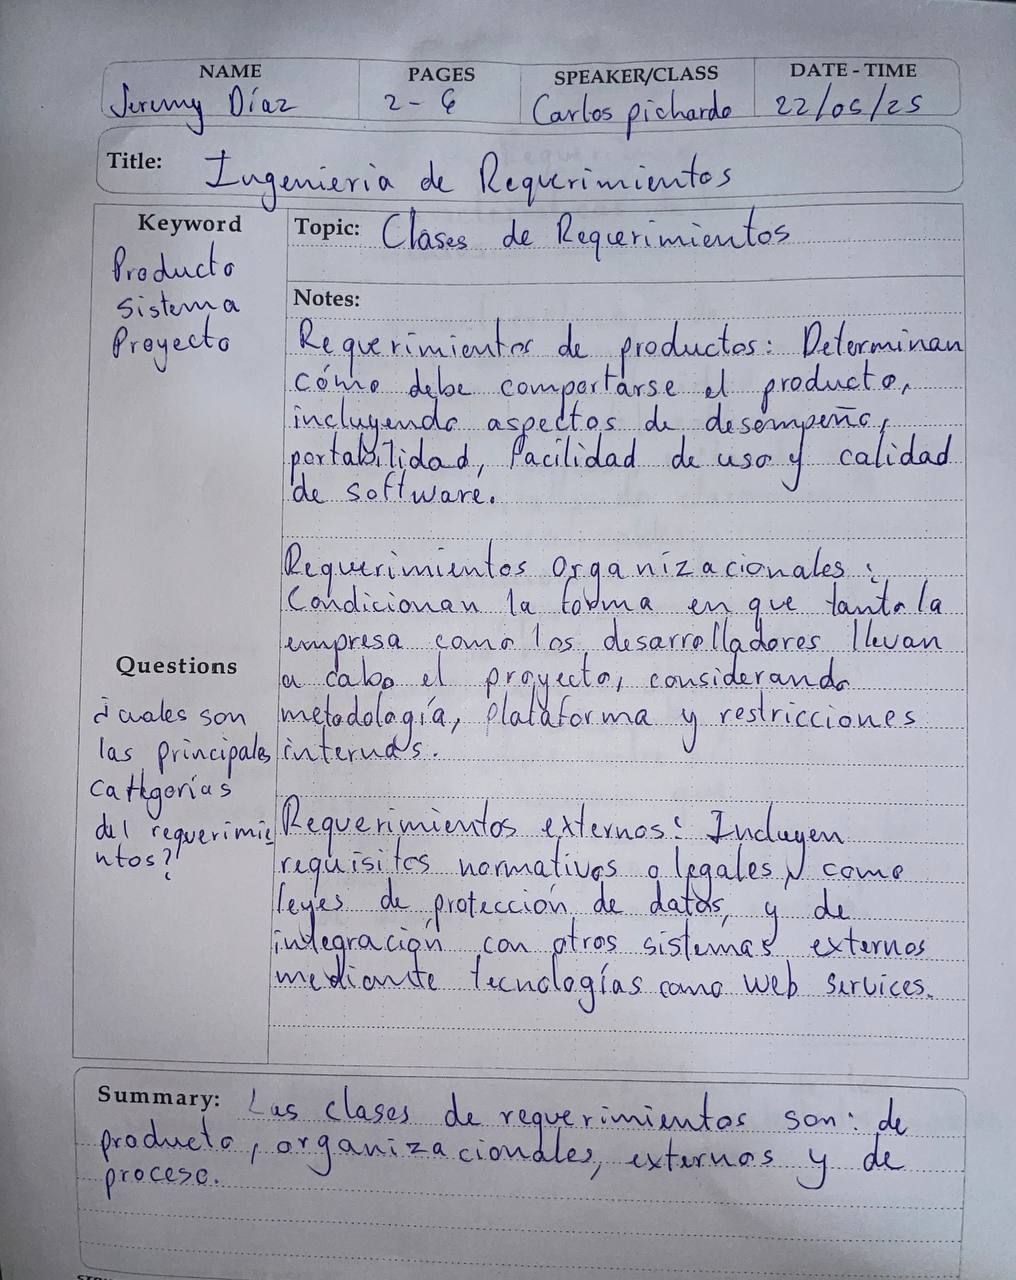 NAME
Jeremy Díaz
PAGES
2 - 6
SPEAKER/CLASS
Carlos pichardo
DATE - TIME
22/05/25
Title: Ingenieria de Requerimientos
Keyword
Producto
Sistema
Proyecto
Topic: Clases de Requerimientos
Notes:
Requerimientos de productos: Determinan
cómo debe comportarse el producto,
incluyendo aspectos de desempeño,
portabilidad, facilidad de uso y calidad
de software.
Requerimientos organizacionales:
Condicionan la forma en que tanto la
empresa como los desarrolladores llevan
a cabo el proyecto, considerando
metodología, plataforma y restricciones
internas.
Requerimientos externos: Incluyen
requisitos normativos o legales, como
leyes de protección de datos, y de
integración con otros sistemas externos
mediante tecnologías como web services.
Questions
¿cuales son
las principales
categorías
del requerimie
ntos?
Summary: Las clases de requerimientos son: de
producto, organizacionales, externos y de
proceso.